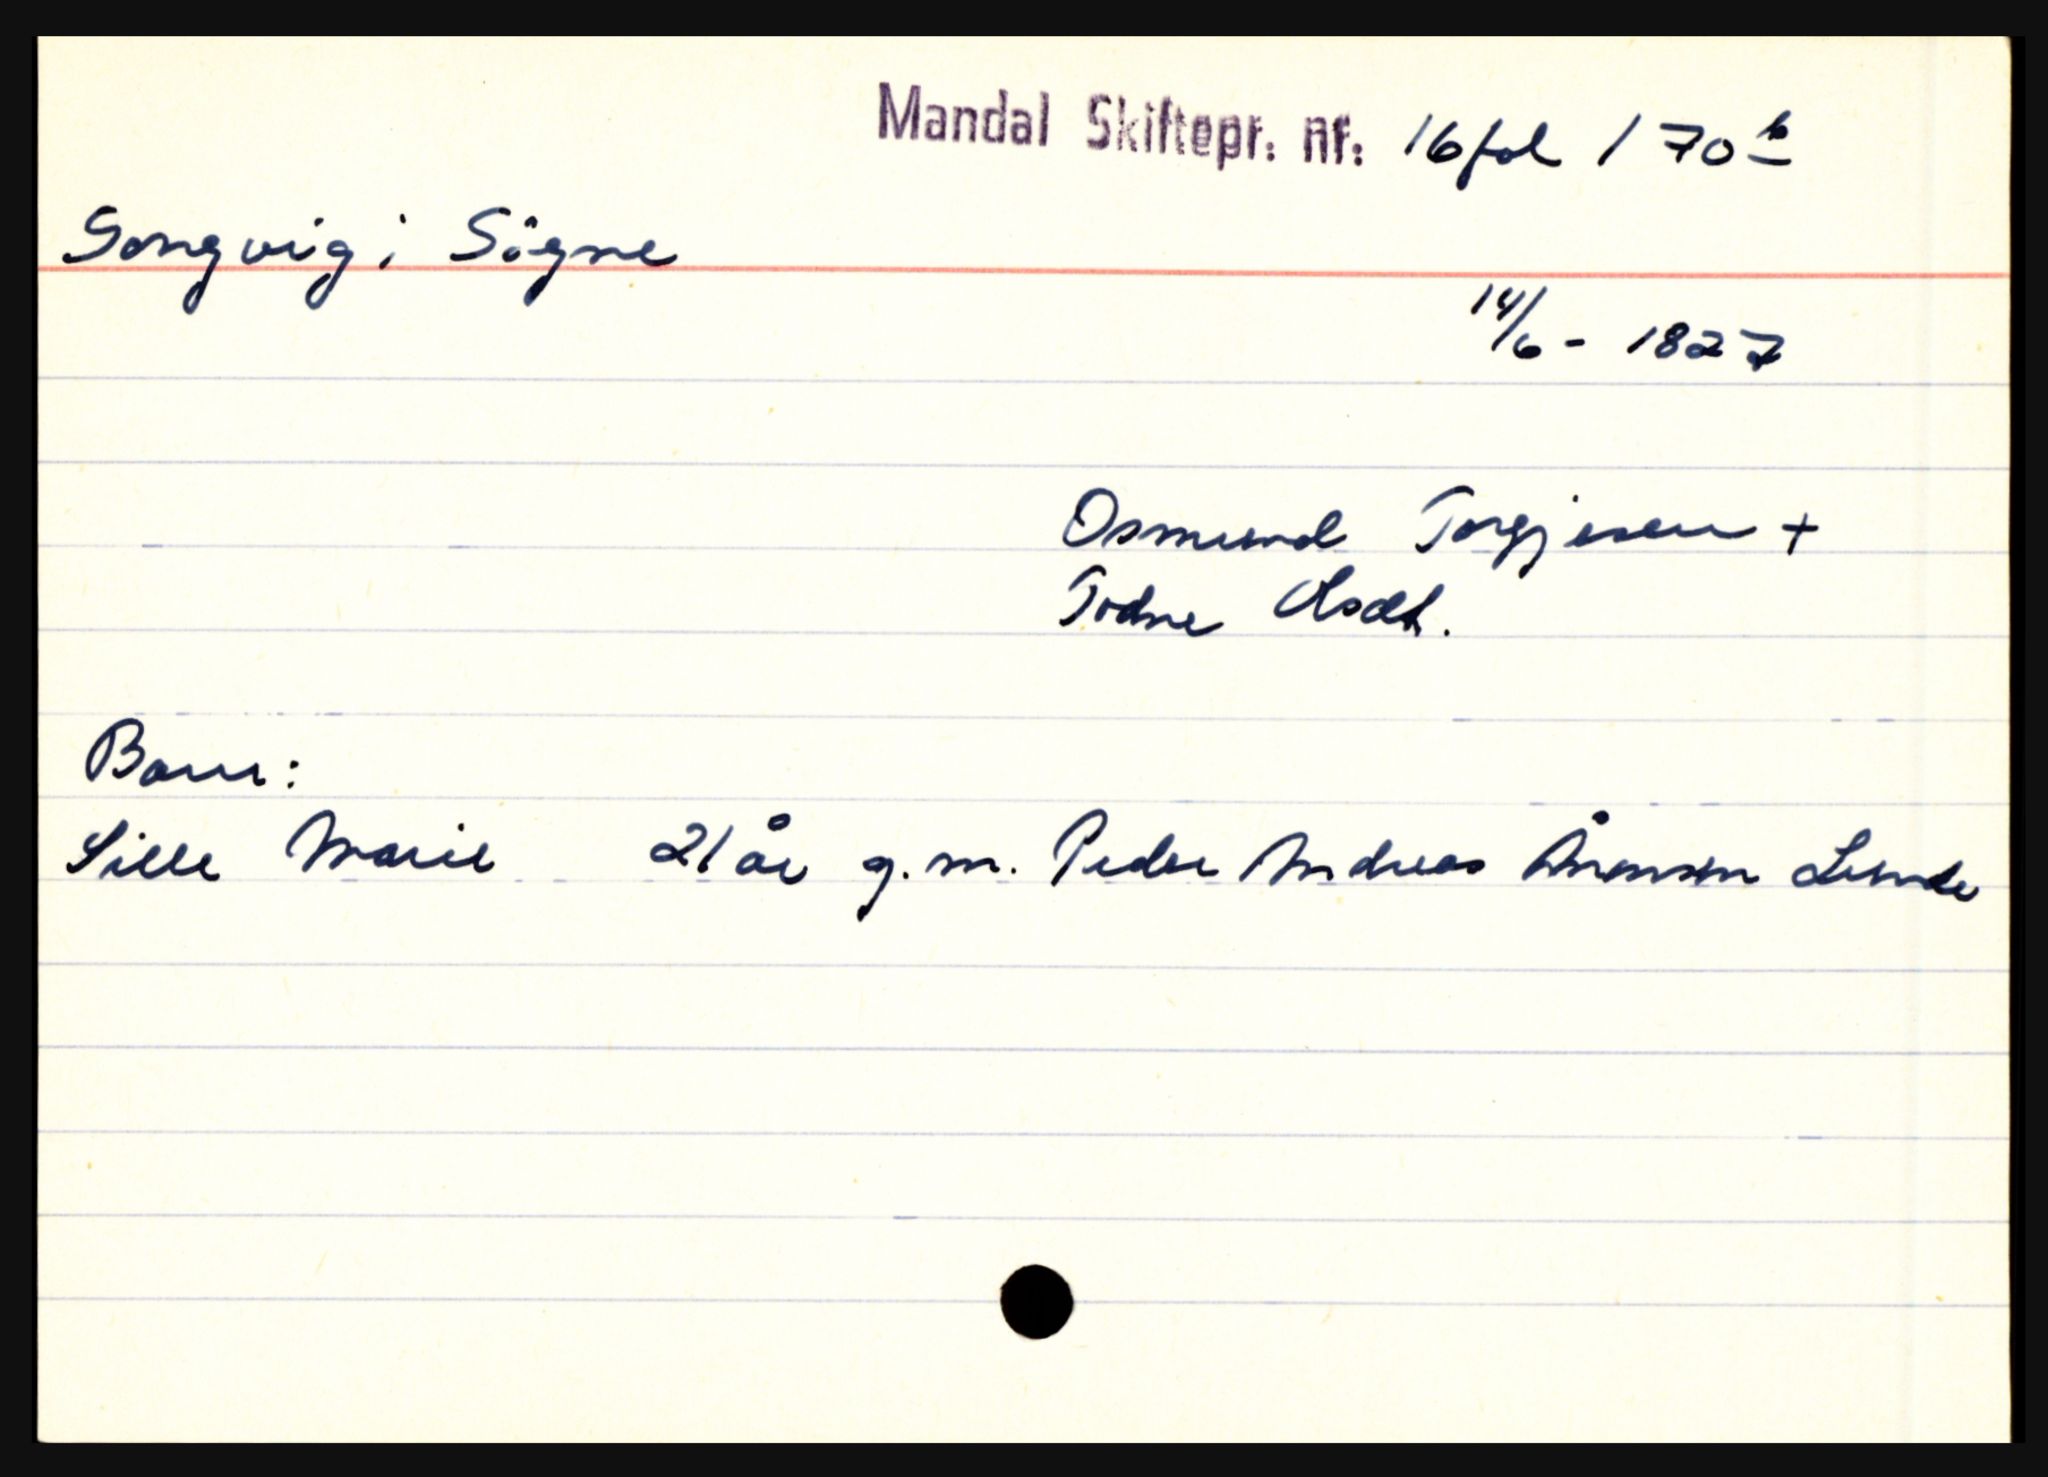 Mandal Skiftepr. nr: 16 fol 170 b
Songvig i Sögne
14/6 - 1827
Osmund Torgjesen +
Todne Olsdt.
Barn:
Sille Marie 21 år g.m. Peder Andreas Ånonsen Lunde